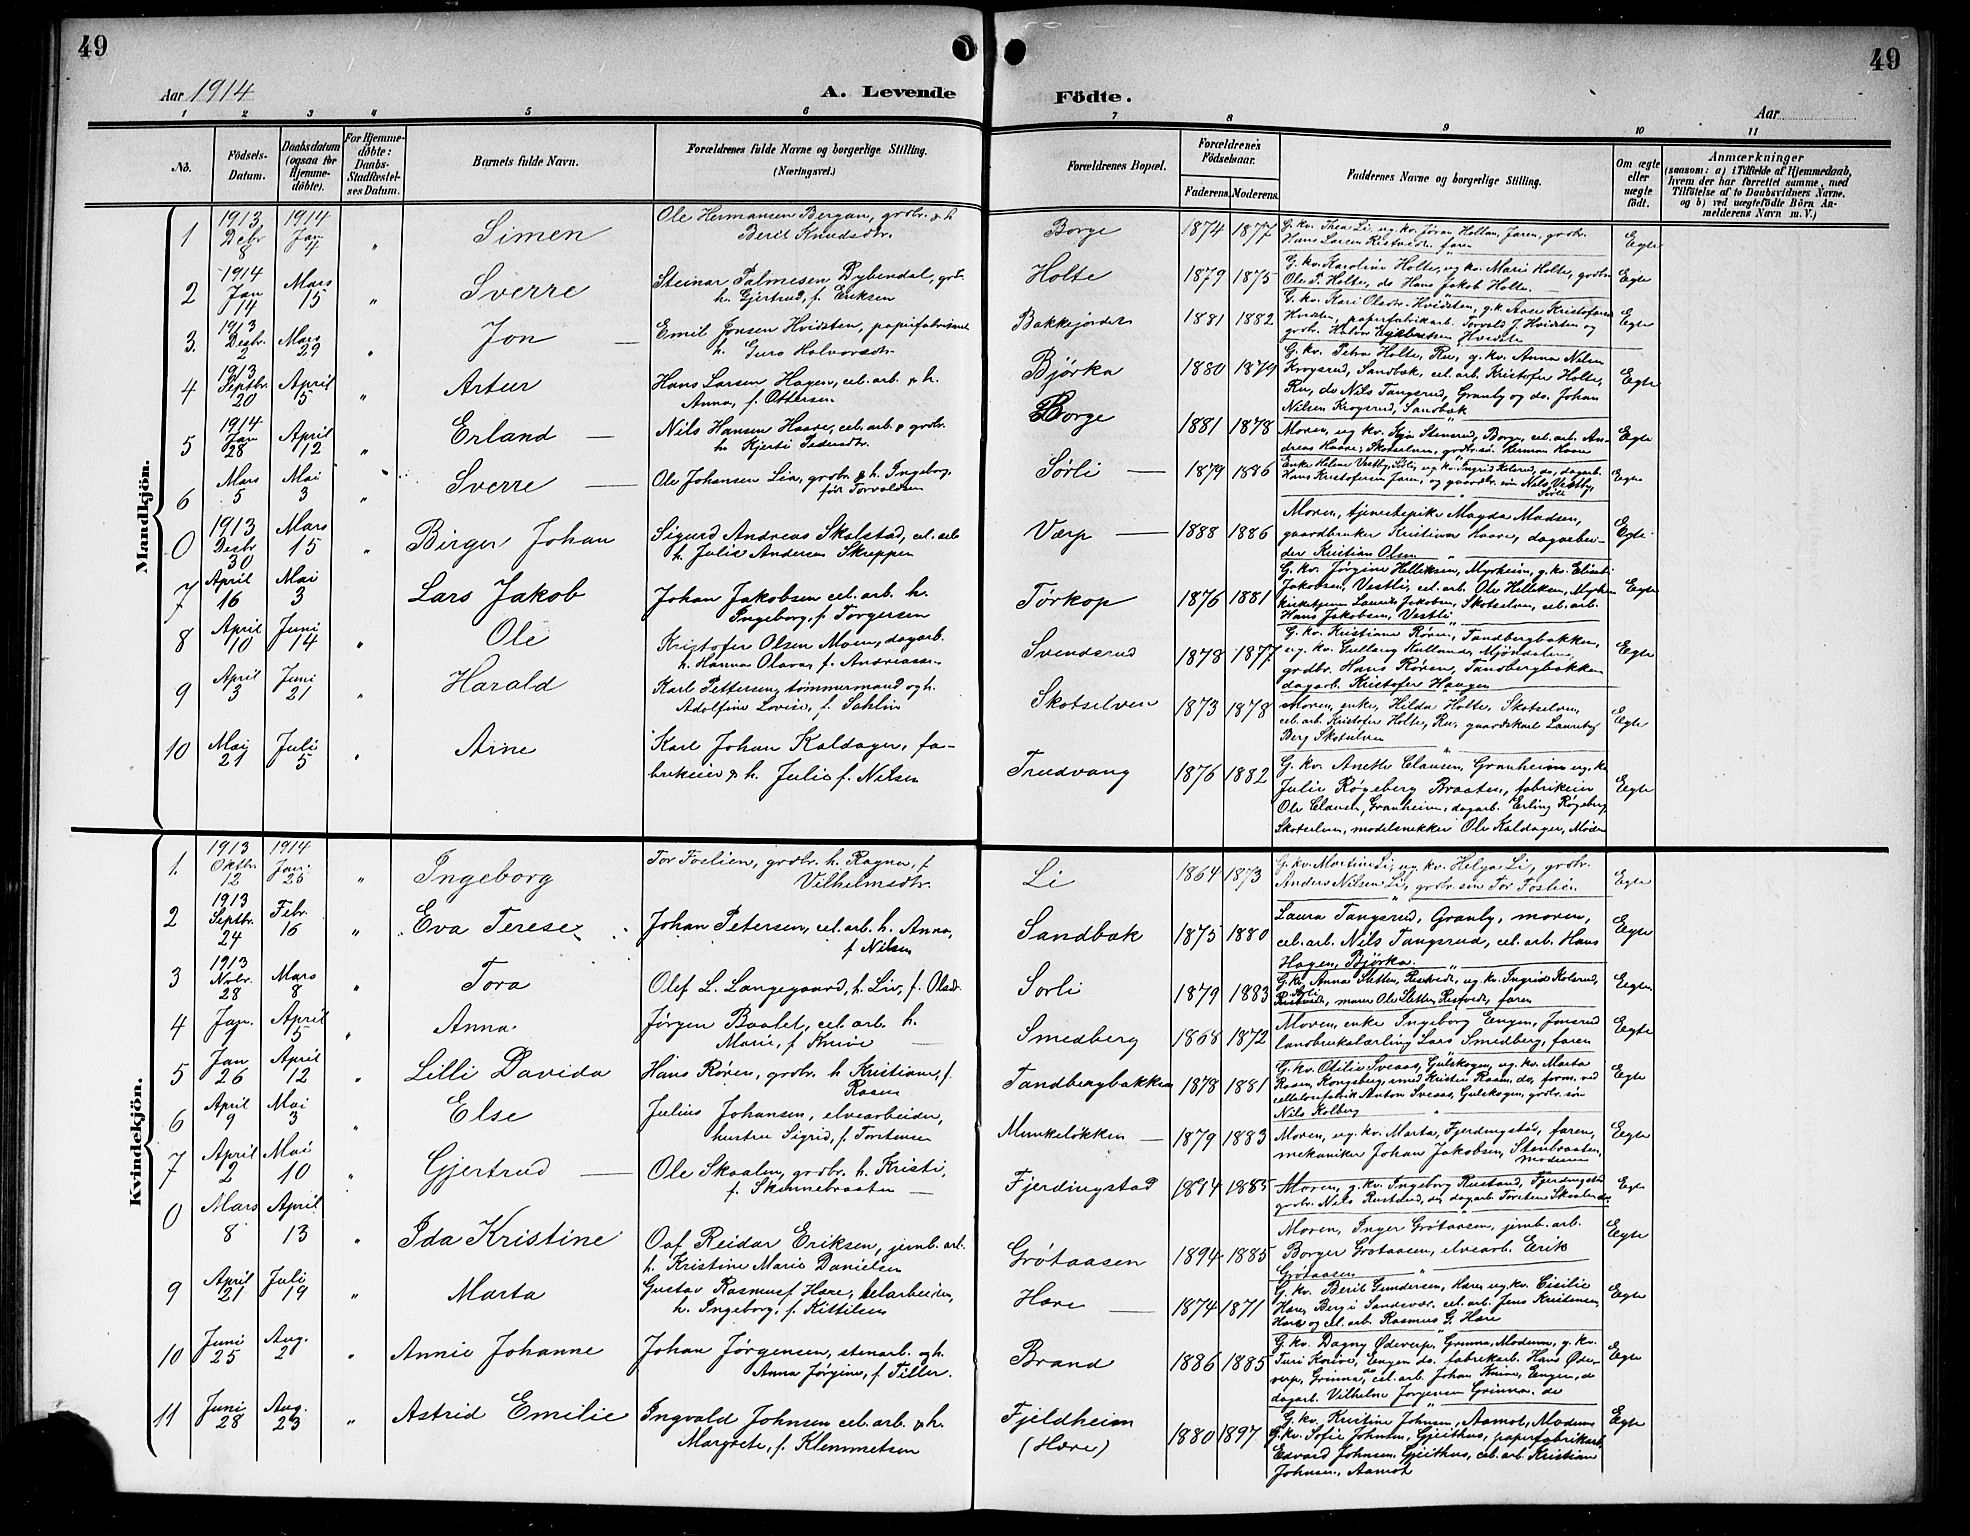 49
49
Aar 1914
A. Levende
Födte.
Aar
1 2 3 4 5 6 7 8 9 10 11
No.
Födsels-Datum.
Daabsdatum (ogsaa for Hjemmedöbte).
For Hjemmedöbte: Daabs-Stadfæstelses Datum.
Barnets fulde Navn.
Forældrenes fulde Navne og borgerlige Stilling.
(Næringsvei.)
Forældrenes Bopæl.
Forældrenes Födselsaar.
Faderens. Moderens.
Faddernes Navne og borgerlige Stilling.
Om ægte eller uægte födt.
Anmærkninger
(saasom: a) i Tilfælde af Hjemmedaab, hvem der har forrettet samme, med Tilföielse af to Daabsvidners Navne. og b) ved uegtefödte Börn Anmelderens Navn m. V.)
Mandkjön.
1 1913 Debr 8 1914 Jan 4 " Simen Ole Hermansen Bergan, grdbr. & h. Berit Knudsdtr. Borge 1874 1877 G. kv. Thea Li, ug. kv. Jøran Hollan, Faren, grdbr. Hans Larsen Ristvedt. faren Egte
2 1914 Jan 14 Mars 15 " Sverre Steinar Palmesen Dybendal, grdbr. h. Gjertrud, f. Eriksen Holte 1879 1875 G. kv. Karoline Holte, ug. kv. Marie Holte, grdbr. Ole P. Holte, do Hans Jakob Holte. Egte
3. 1913 Desbr. 2 Mars 29 " Jon Emil Jonsen Hvidsten, papirfabrikarb. h. Guro Halvorsdtr. Bakkejordet 1881 1882 G. kv. Kari Olsdtr. Hvidsten, g.k. Aase Kristofersd. Hvidsten, papirfabrikarb. Torvald J. Hvidsten og grdbr. Halvor Hvidsten Egte
4 1913 Septbr. 20 April 5 " Artur Hans Larsen Hagen, cel. arb. & h. Anna, f. Ottersen Bjørka 1880 1879 G. kv. Petra Holte, Ru, g. kv. Anna Nilsen Krogsrud, Sandbæk, cel. arb. Kristofer Holte, Ru, do Nils Tangsrud, Granly og do. Johan Nilsen Krogsrud, Sandbæk Egte
5 1914 Jan 28 April 12 " Erland Nils Hansen Haare, cel. arb. & grdbr. h. Kjersti Pedersdtr. Borge 1881 1878 Moren, ug kv. Stensrud, Borge, cel. arb. Andreas Haare, Skotselven, grdbr. sön Herman Haare Egte
6 Mars 5 Mai 3 " Sverre Ole Johansen Lia, grdbr & h. Ingeborg, föd Torvaldsen Sørli 1879 1886 Enke Helene Vestby, Sørli, ug. kv. Ingrid Kolsrud, do, dagarb. Hans Kristofersen Faren, og gaardbr. sön Nils Vestby, Sørli Egte
0 1913 Desbr 30 Mars 15 " Birger Johan Sigurd Andreas Skalstad, cel. arb h. Julie Andersen Skreppen Værp 1888 1886 Moren, tjenestepike Magda Madsen, gaardbruker Kristian Haare, dagarbeider Kristian Olsen Egte
7 April 16 Mai 3 Lars Jakob Johan Jakobsen cel. arb. h. Ingeborg, f. Torgersen Tørkop 1876 1881 G. kv. Jørgine Helliksen, Myrheim, g. kv. Elise Jakobsen, Vestli, cel. arb. Ole Helliksen, Myrheim kirketjener Laurits Jakobsen, Skotselven, cel. arb. Hans Jakobsen, Vestli Egte
8 April 10 Juni 14 " Ole Kristofer Olsen Moen, dagarb. h. Hanna Olava, f. Andreassen Svendsrud 1878 1877 G. kv. Kristiane Røren, Tandbergbakken, ug. kv. Gulborg Kulland, Mjøndalen, grdbr. Hans Røren, Tandbergbakken dagarb. Kristofer Haagen Egte
9 April 3 Juni 21 " Harald Karl Pettersen, tømmermand og h. Adolfine Lovise, f. Sahlin Skotselven 1873 1878 Moren, enke, Hilda Holte, Skotselven, cel. arb. Kristofer Holte, Ru, gaardskarl Laurits Berg Skotselven Egte
10 Mai 21 Juli 5 " Arne Karl Johan Kaldager, fabrikeier & h. Julie f. Nilsen Trudvang 1876 1882 G. kv. Anette Clausen, Granheim ug. kv. Julie Røgeberg Braaten, fabrikeier Ole Clausen, Granheim, dagarb. Erling Røgeberg, Skotselven, modelsnekker Ole Kaldager, Moden Egte
Kvindekjön.
1. 1913 Oktbr. 12 1914 Jan. 25 " Ingeborg Tor Foslien, grdbr. h. Ragna, f Vilhelmsdtr. Li 1864 1873 G. kv. Martine Li, ug. kv. Helga Li, grdbr. Anders Nilsen Li, grdbr. sön Tor Foslie. Egte
2 1913 Septbr. 24 Febr. 16 " Eva Terese Johan Petersen, cel. arb. h. Anna, f Nilsen Sandbæk 1875 1880 Laura Tangsrud, Granly, moren, cel. arb. Nils Tangsrud, cel. arb. Hans Hagen, Bjørka. Egte
3 1913 Novbr. 28 Mars 8 " Tora Olef L. Langegaard, h. Liv, f. Olsdtr. Sørli 1879 1883 G. kv. Anna Sletten, Ristvedt, ug. kv. Ingrid Kolsrud, Sørli, Ole Sletten, Ristvedt, faren Egte
4 Jan. April 5 " Anna Jørgen Baalet, cel. arb. h. Marie, f Knive Smedberg 1868 1872 Moren, enke Ingeborg Engen, Jonsrud landbrukslærling Lars Smedberg, faren Egte
5 Jan 26 April 12 " Lilli Davida Hans Røren, grdbr. h Kristiane, f. Raaen Tandbergbakken 1878 1881 G. kv. Otilie Sveaas, Gulskogen, ug. kv. Marta Raaen, Kongsberg, smed Kristen Raaen, do, form. ved cellulosefabrik Anton Sveaas, Gulskogen, grdbr. sön Nils Kolberg Egte
6 April 9 Mai 3 " Else Julius Johansen, elvearbeider, hustru Sigrid, f. Torstensen Munkeløkken 1879 1883 Moren, ug. kv. Marta, Fjerdingstad, faren, mekaniker Johan Jakobsen, Stenbraaten, Modum Egte
7 April 2 Mai 10 " Gjertrud Ole Skaalen, grdbr. h. Kristi, f. Skinnebraaten Fjerdingstad 1885 Moren, g. kv. Ingeborg Rustand, Fjerdingstad grdbr. Nils Rustand, do, dagarb Torsten Skaalen do Egte
0 Mars 8 April 13 " Ida Kristine Oaf Reidar Eriksen, jernb. arb. h. Kristine Marie Danielsen Grötaasen 1894 1885 Moren, Inger Grötaasen, jernb. arb. Borger Grötaasen, elvearb. Eerik Grötaasen Egte
9 April 21 Juli 19 " Marta Gustav Rasmus Hare, celarbeider, h. Ingeborg, f. Kittilsen Hare 1874 1871 G. kv. Berit Gundersen, Hare, ug. kv. Cisilie Hare, Berg i Sandsvær, cel. arb. Jens Kristensen, Hare og cel. arb. Rasmus G. Hare Egte
10 Juni 25 Aug. 2 " Annie Johanne Johan Jørgensen, stenarb. og h. Anna Jørgine, f. Tiller. Brand 1886 1885 G. kv. Dagny Ødeverp, Grinna, Modum, g. kv. Turi Knive, Engen do. fabrikarb. Hans Ødeverp, Grinna, cel. arb. Johan Knive, Engen, do dagarb. Vilhelm Jørgensen Grinna. do Egte
11 Juni 28 Aug. 23 " Astrid Emilie Ingvald Johnsen cel. arb. & h. Margrete, f. Klemmetsen Fjeldheim (Hare) 1880 1897 G. kv. Kristine Johnsen, Aamot, Modum G. kv. Sofie Johnsen, Gjeithus, papirfabrikarb. Edvard Johnsen, Gjeithus, cel. arb. Kristian Johnsen, Aamot Egte